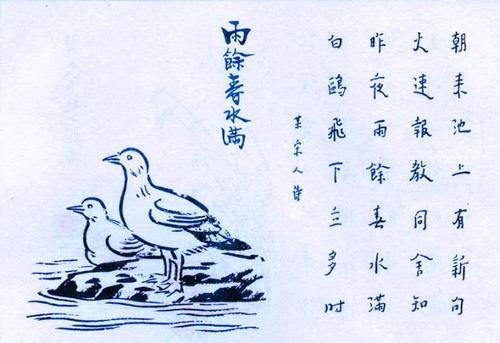 朝来池上有新句
火速報教同舍知
昨夜雨餘春水满
白鷗飛下立多时
宋人诗
雨餘春水满